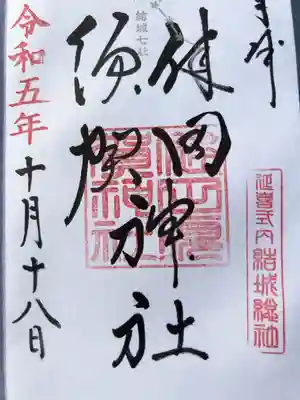 奉拝
延喜式内 結城総社
結城七社
健田
須賀
神社
令和五年十月十八日